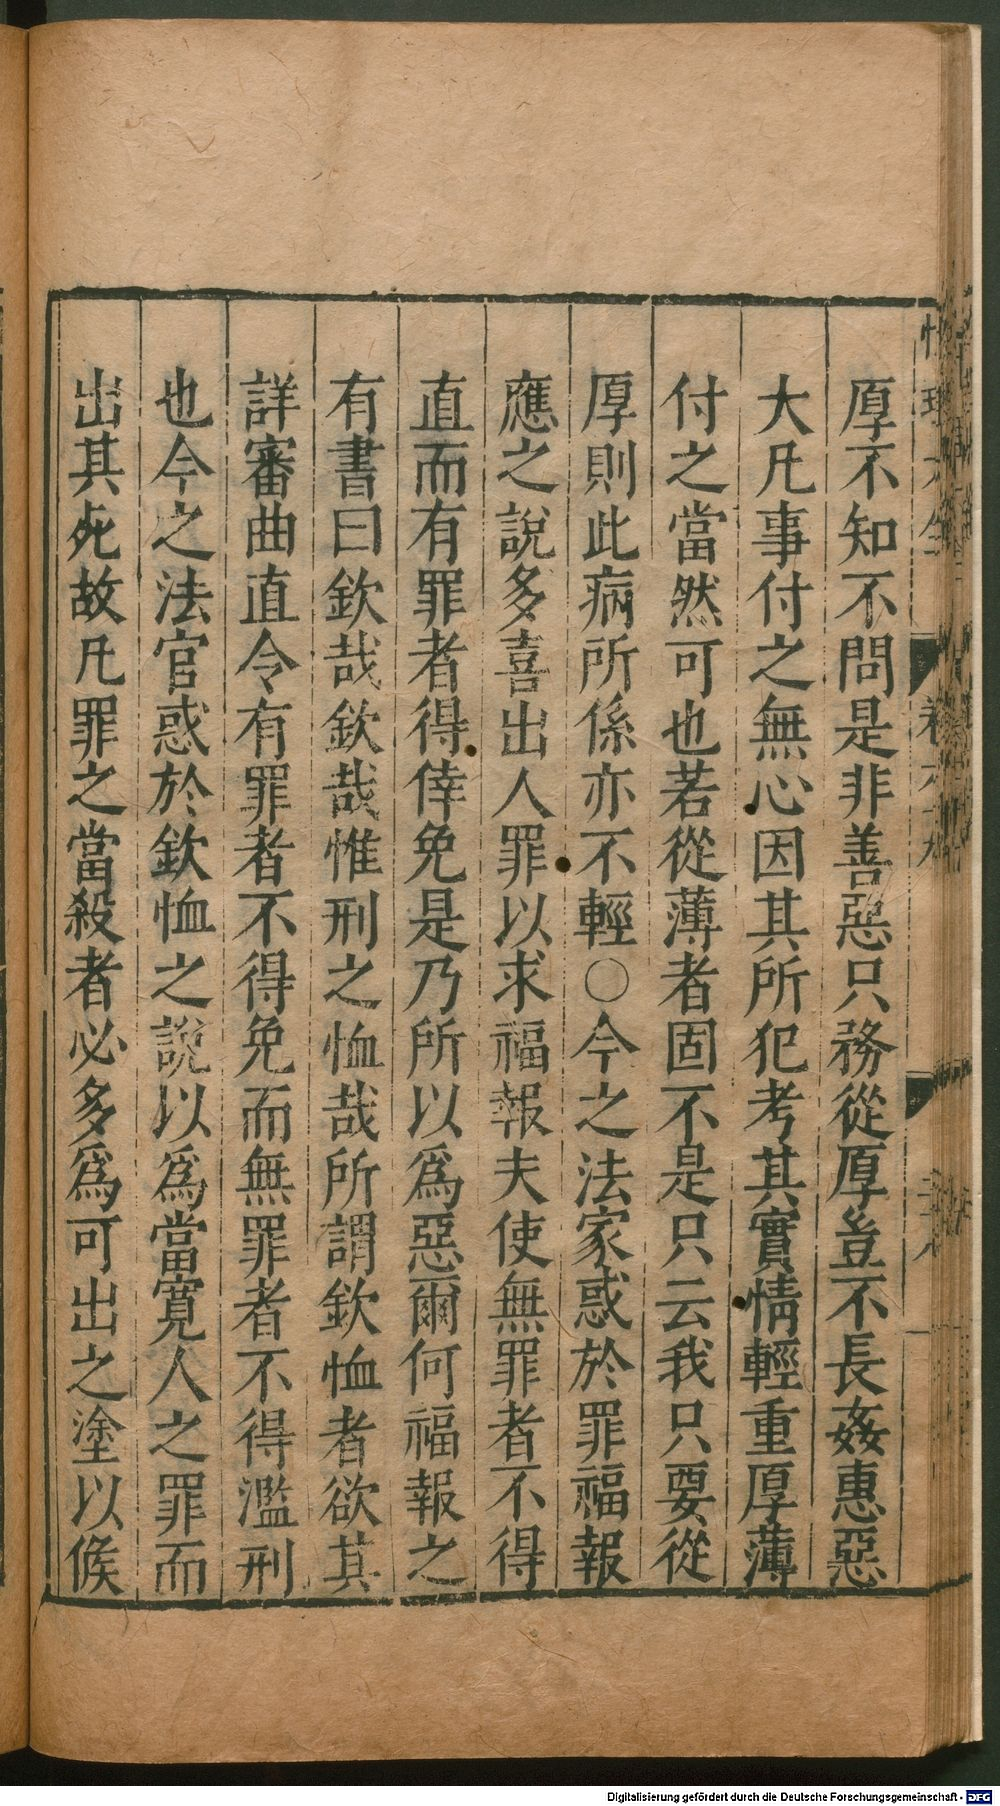 厚不知不問是非善惡只務從厚豈不長姦惠惡
大凡事付之無心因其所犯考其實情輕重厚薄
付之當然可也若從薄者固不是只云我只要從
厚則此病所係亦不輕○今之法家惑於罪福報
應之說多喜出人罪以求福報夫使無罪者不得
直而有罪者得倖免是乃所以爲惡爾何福報之
有書曰欽哉欽哉惟刑之恤哉所謂欽恤者欲其
詳審曲直令有罪者不得免而無罪者不得濫刑
也今之法官惑於欽恤之說以爲當寛人之罪而
出其死故凡罪之當殺者必多爲可出之塗以候
Digitalisierung gefördert durch die Deutsche Forschungsgemeinschaft - DFG